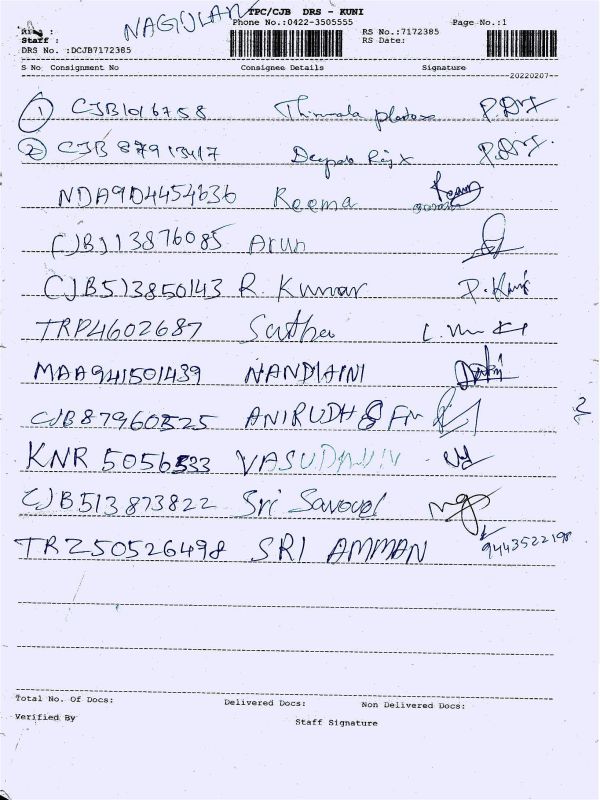 NAGULAN
TPC/CJB DRS - KUNI
Phone No.:0422-3505555 Page No.:1
RS No.:7172385
Staff : RS Date:
DRS No. :DCJB7172385
S No Consignment No Consignee Details Signature
20220207
1 CJB1016758 Thirumala
2 CJB 87913417 Deepak
NDA904454636 Reema
CJB113876085 Arun
CJB513850143 R. Kumar
TRP4602687 Sutha
MAA941501439 NANDIAINI
CJB87960525 ANIRUDH
KNR 5056533
CJB513873822 Sri
TRZ50526498 SRI AMMAN 9443522198
Total No. Of Docs: Delivered Docs: Non Delivered Docs:
Verified By Staff Signature